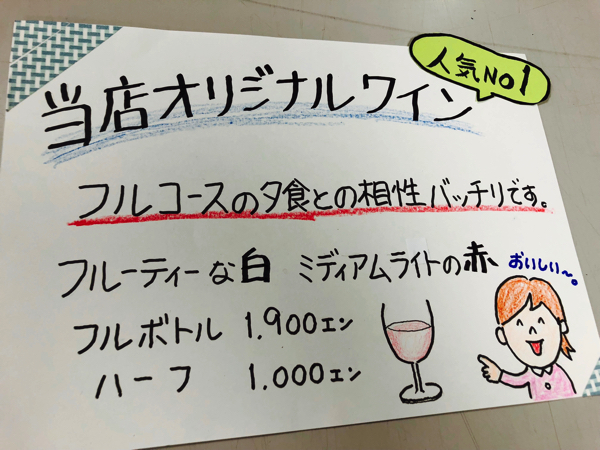 人気NO1
当店オリジナルワイン
フルコースの夕食との相性バッチリです。
フルーティーな白 ミディアムライトの赤
おいしい〜。
フルボトル 1.900エン
ハーフ 1.000エン